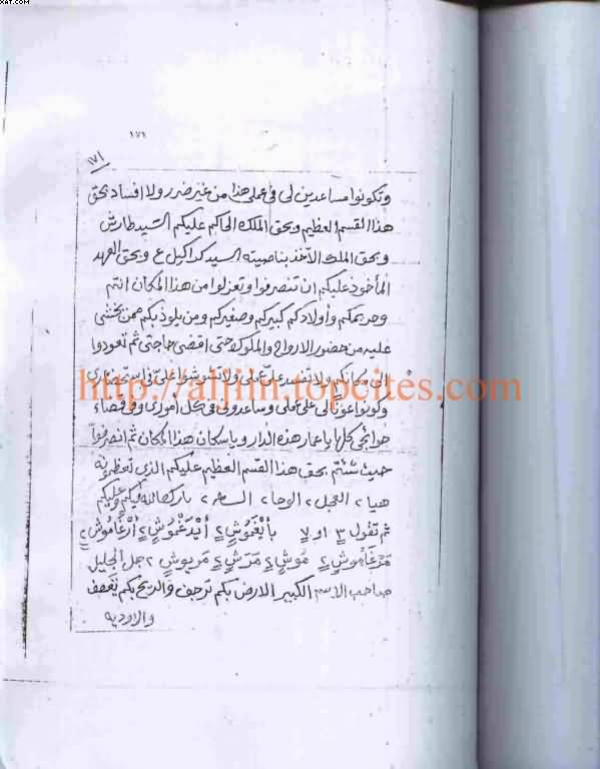 XAT.COM
١٧١
١٧١
وتكونوا مساعدين لى فى عملى هذا من غير ضرر ولا افساد بحق
هذا القسم العظيم وبحق الملك الحاكم عليكم السيد طارش
وبحق الملك الآخذ بناصيته السيد ككداكيل ع وبحق العهد
المأخوذ عليكم ان تنصرفوا وتعزلوا من هذا المكان انتم
وحريمكم واولادكم كبيركم وصغيركم ومن يلوذ بكم ممن يخشى
عليه من حضور الارواح والملوك حتى اقضى حاجتى ثم تعودوا
الى مكانكم ولا تفسدوا على عملى ولا تشوشوا على فى استحضارى
http://aljiin.topcites.com
وكونوا عونا لى على عملى وساعدونى فى كل امورى وفى قضاء
حوائجى كلها يا عمار هذه الدار ويا سكان هذا المكان ثم انصرفوا
حيث شئتم بحق هذا القسم العظيم عليكم الذى تعظمونه
هيا ٢ العجل ٢ الوحا ٢ الساعة ٢ بارك الله فيكم وعليكم
ثم تقول ٣ او ٧ بأيْغَمُوشٍ ٢ أبْدَغْمُوشٍ ٢ أرْغَامُوشٍ ٢
مَرْغَامُوشٍ ٢ مُوشٍ ٤ مَرَشٍ ٢ مَريوشٍ ٢ جل الجليل
صاحب الاسم الكبير الارض بكم ترجف والريح بكم يَعْصِف
والاودية